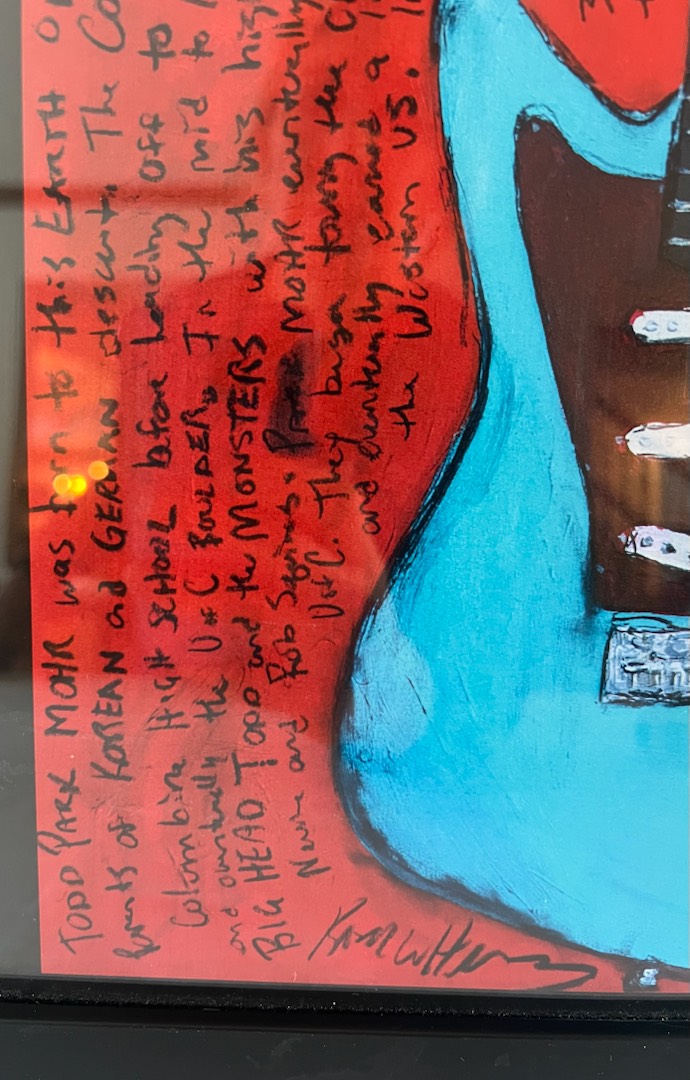 TODD PARK MOHR was born to this EARTH
of KOREAN and GERMAN descent. The
Columbine HIGH SCHOOL before heading off to
and eventually the U of C BOULDER. In the mid to
BIG HEAD TODD and the MONSTERS with his
and Rob MOHR eventually
U of C. They began the
and eventually earned a
the Western US.